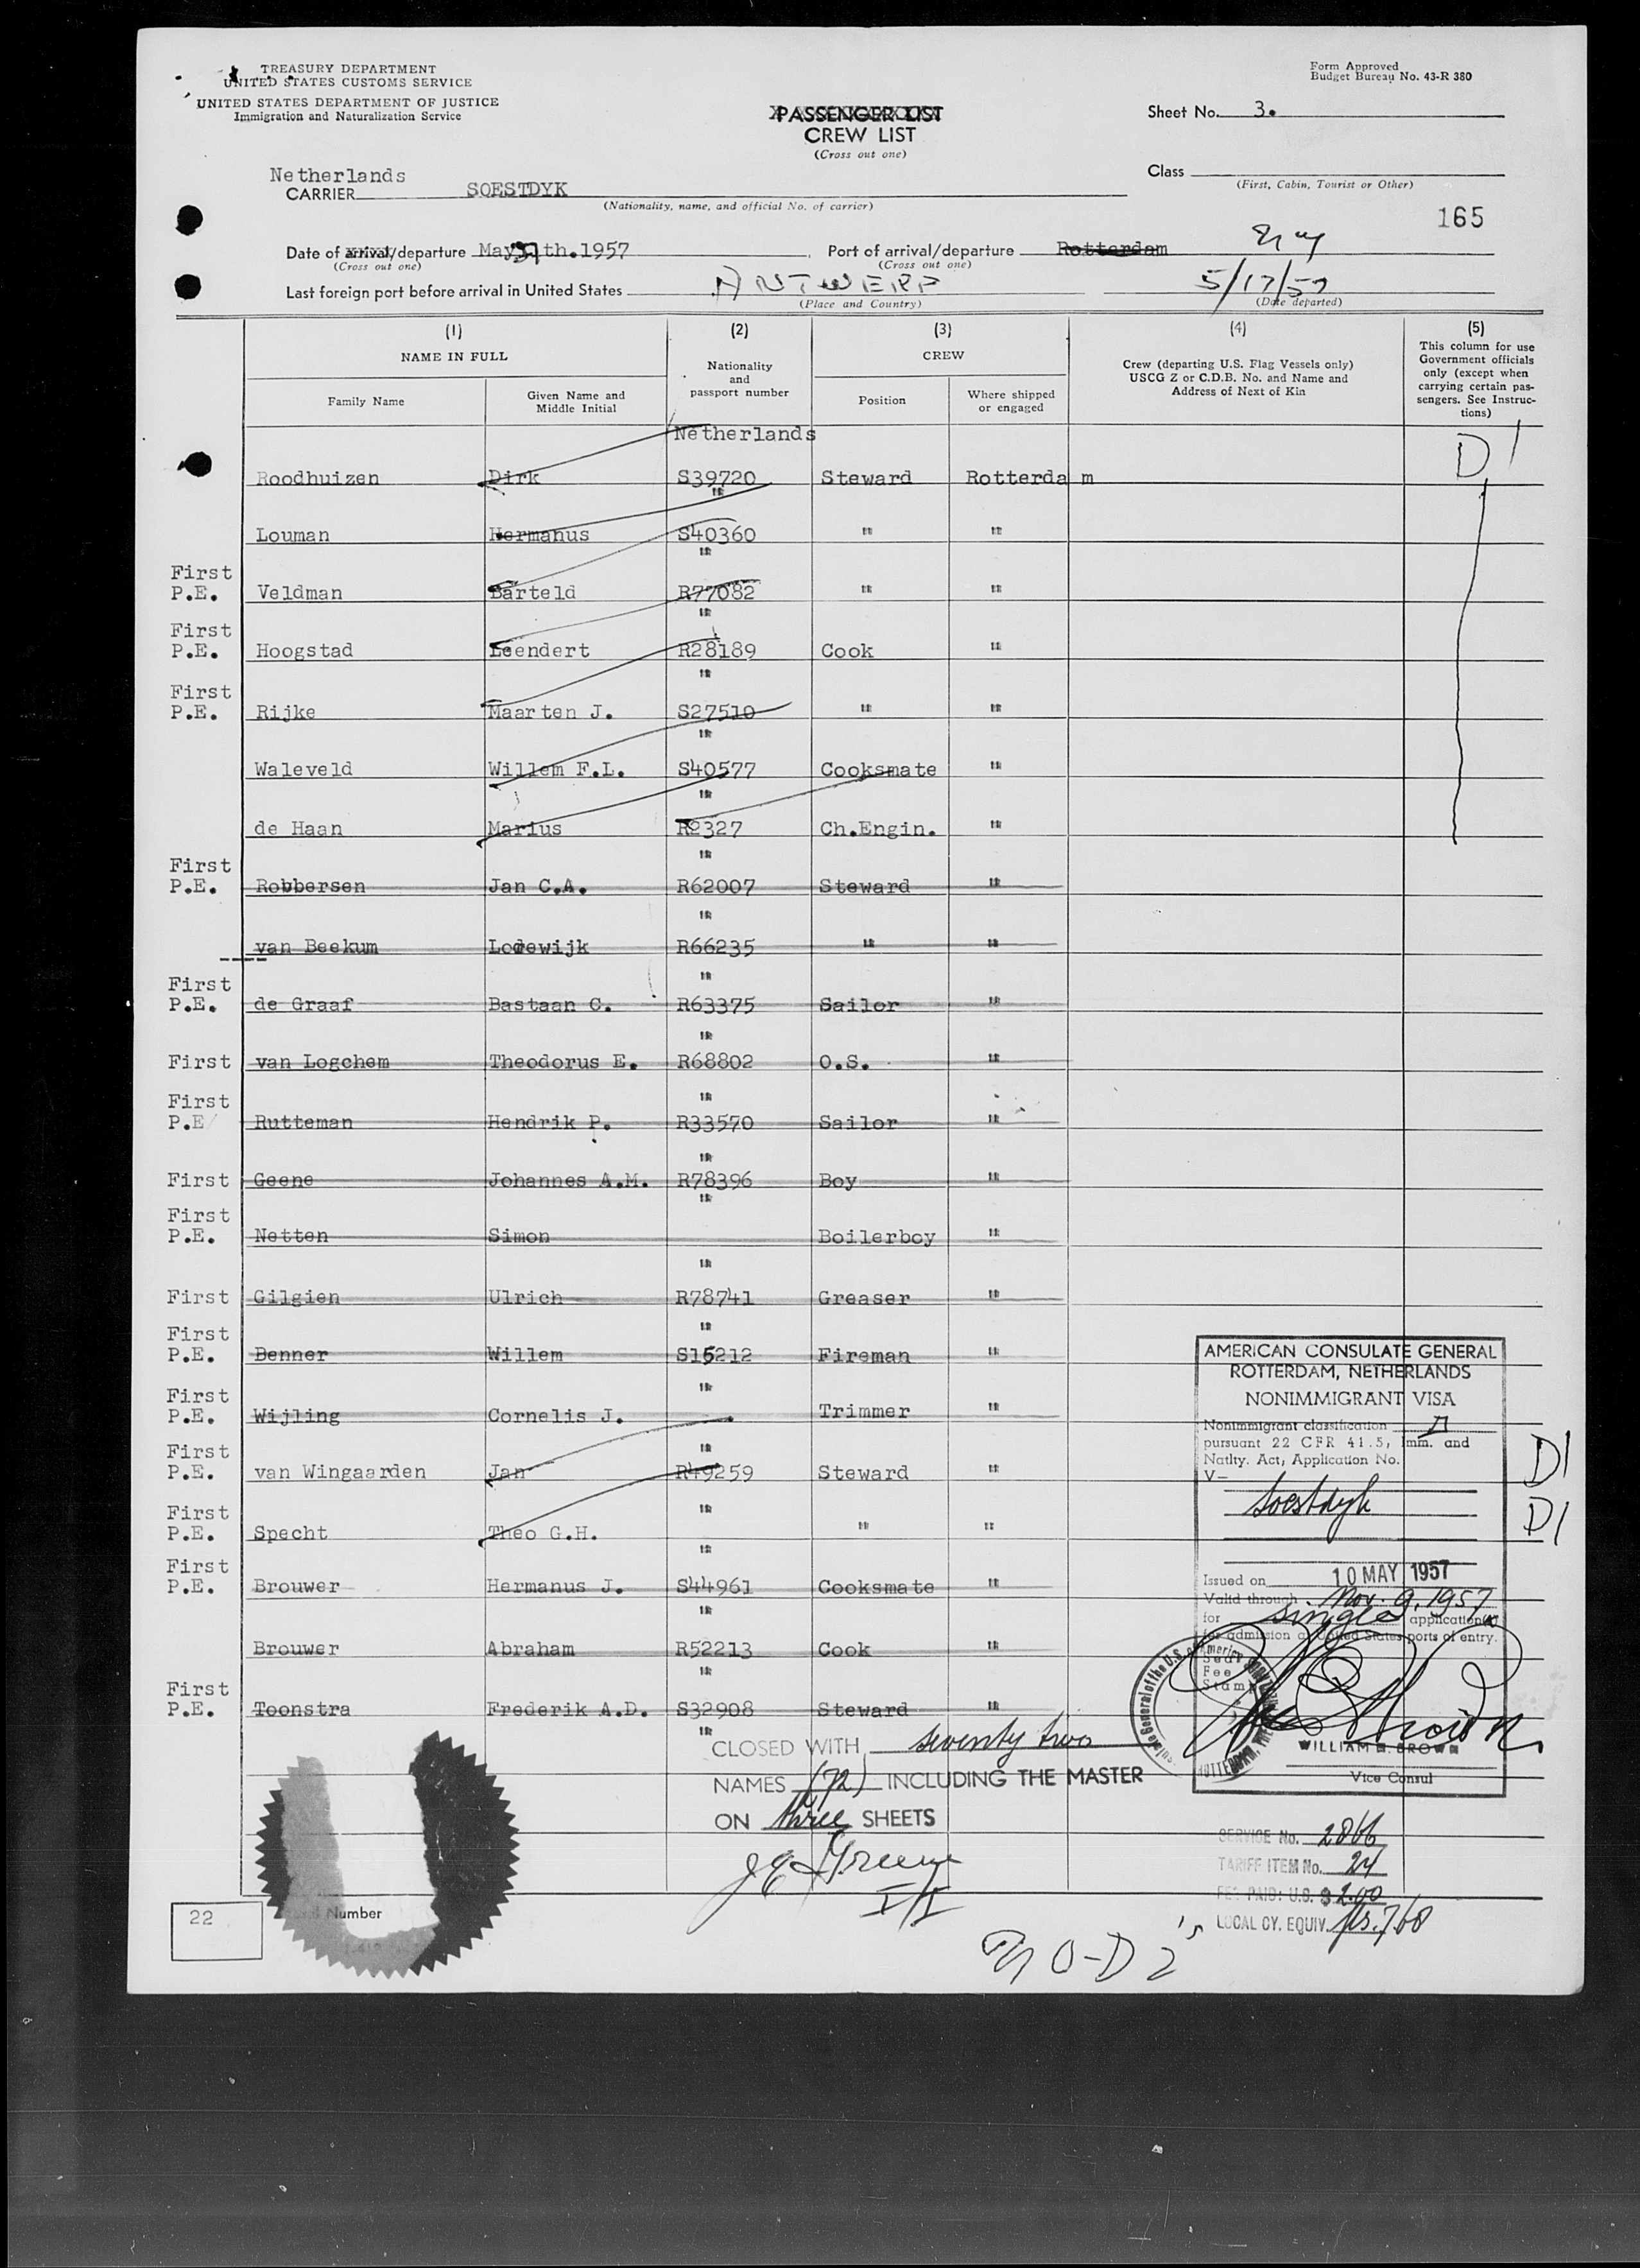 TREASURY DEPARTMENT
UNITED STATES CUSTOMS SERVICE
UNITED STATES DEPARTMENT OF JUSTICE
Immigration and Naturalization Service
Form Approved
Budget Bureau No. 43-R 380
PASSENGER LIST
CREW LIST
(Cross out one)
Sheet No. 3.
Class
(First, Cabin, Tourist or Other)
Netherlands
CARRIER SOESTDYK
(Nationality, name, and official No. of carrier)
165
Date of arrival/departure May th.1957
(Cross out one)
Port of arrival/departure Rotterdam NY
(Cross out one)
Last foreign port before arrival in United States ANTWERP 5/17/57
(Place and Country) (Date departed)
(1) (2) (3) (4) (5)
NAME IN FULL
Family Name
Given Name and Middle Initial
Nationality and passport number
CREW
Position
Where shipped or engaged
Crew (departing U.S. Flag Vessels only)
USCG Z or C.D.B. No. and Name and
Address of Next of Kin
This column for use
Government officials
only (except when
carrying certain pas-
sengers. See Instruc-
tions)
Netherlands
Roodhuizen Dirk S39720 Steward Rotterdam D1
"
Louman Hermanus S40360 " "
"
First
P.E. Veldman Barteld R77082 " "
"
First
P.E. Hoogstad Leendert R28189 Cook "
"
First
P.E. Rijke Maarten J. S27510 " "
"
Waleveld Willem F.L. S40577 Cooksmate "
"
de Haan Marius R2327 Ch.Engin. "
"
First
P.E. Robbersen Jan C.A. R62007 Steward "
"
van Beekum Lodewijk R66235 " "
"
First
P.E. de Graaf Bastaan C. R63375 Sailor "
"
First van Logchem Theodorus E. R68802 O.S. "
"
First
P.E Rutteman Hendrik P. R33570 Sailor "
"
First Geene Johannes A.M. R78396 Boy "
"
First
P.E. Netten Simon Boilerboy "
"
First Gilgien Ulrich R78741 Greaser "
"
First
P.E. Benner Willem S15212 Fireman "
"
First
P.E. Wijling Cornelis J. Trimmer "
"
First
P.E. van Wingaarden Jan R49259 Steward " D1
"
First
P.E. Specht Theo G.H. " " D1
"
First
P.E. Brouwer Hermanus J. S44961 Cooksmate "
"
Brouwer Abraham R52213 Cook "
"
First
P.E. Toonstra Frederik A.D. S32908 Steward "
"
AMERICAN CONSULATE GENERAL
ROTTERDAM, NETHERLANDS
NONIMMIGRANT VISA
Nonimmigrant classification D
pursuant 22 CFR 41.5, Imm. and
Natlty. Act, Application No.
V-
Soestdyk
Issued on 10 MAY 1957
Valid through Nov. 9, 1957
for single application(s)
for admission at United States ports of entry.
Seal
Fee
Stamp
WILLIAM BROWN
Vice Consul
CLOSED WITH seventy two
NAMES (72) INCLUDING THE MASTER
ON three SHEETS
I/I
SERVICE No. 2866
TARIFF ITEM No. 24
FEE PAID: U.S. $ 2.00
LOCAL CY. EQUIV. fls. 7.60
22
Number
NO-D2's